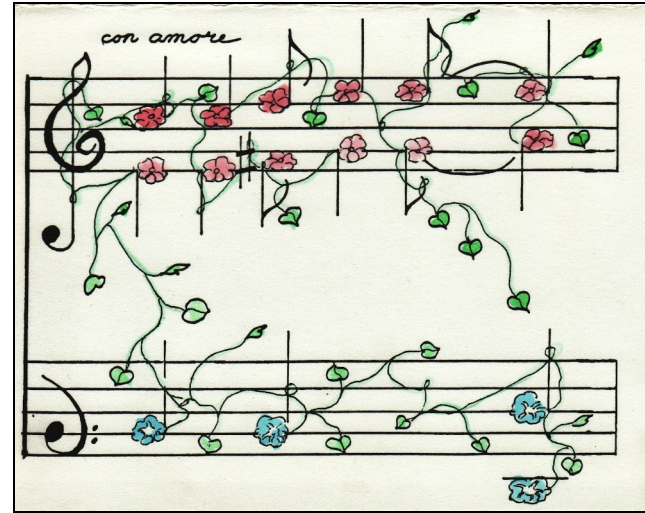 con amore